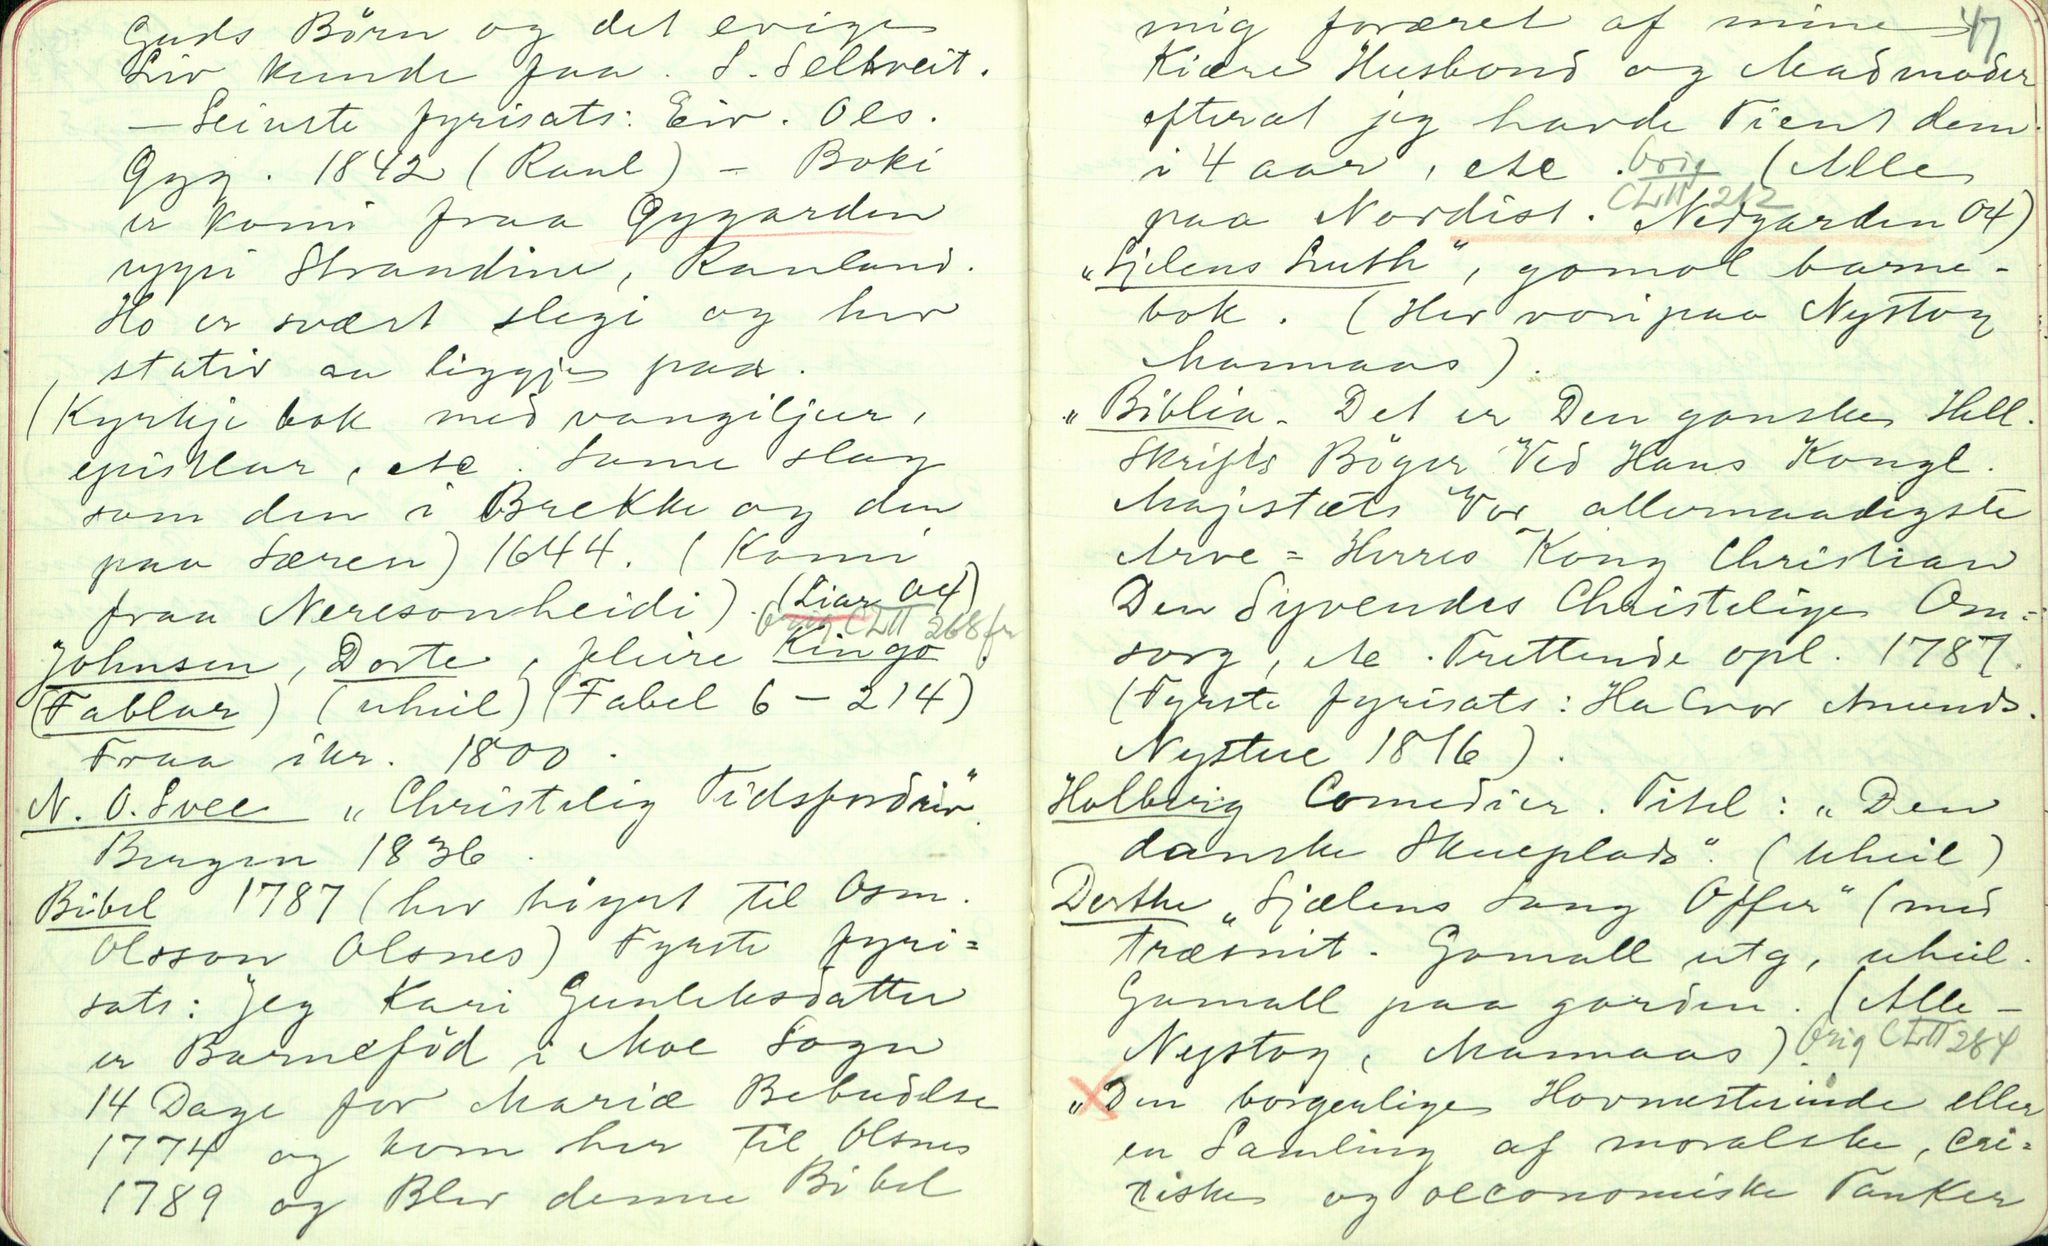 Guds Børn og det evige
Liv kunde faa. S. Seltveit.
— Seinste fyrisats: Eiv. Ols.
Gyg. 1842 (Raul) – Boki
er komi fraa Gygarden
uppi Strandine, Rauland.
Ho er svært slegi og hev
stativ aa liggje paa.
(Kyrkjebok med vangiljur,
epistlar, etc. Same slag
som den i Brekke og den
paa Særen) 1644. (Komi
fraa Neresonheidi). (Liar 04)
Orig CLII 268 fr
Johnsen, Dorte, fleire Kingo.
(Fablar) (uheil) (Fabel 6 – 214)
Fraa ikr. 1800.
N. O. Svee „Christelig Tidsfordriv".
Bergen 1836.
Bibel 1787 (hev høyrt til Osm.
Olsson Olsnes) Fyrste fyri=
sats: Jeg Kari Gunleksdatter
er Barneföd i Moe Sogn
14 Dage for Mariæ Bebudelse
1774 og kom her til Olsnes
1789 og Blev denne Bibel
47
mig foræret af mine
Kiære Husbond og Madmoder
efterat jeg havde Tient dem
i 4 aar, etc. Orig (Alle
CLII 212
paa Nordist. Nedgarden 04)
„Sjelens Luth", gomol barne-
bok. (Her voripaa Nystog
Mannaas).
„Biblia. Det er Den ganske Hell.
Skrifts Böger Ved Hans Kongl.
Majestæts Vor allernaadigste
Arve=Herres Kong Christian
Den Syvendes Christelige Om=
sorg, etc. Trettende opl. 1787.
(Fyrste fyrisats: Halvor Amunds.
Nystue 1816).
Holberg Comedier. Titel: „Den
danske Skueplads". (Uheil)
Dorthe „Sjælens Sang Offer" (med
træsnit. Gomall utg, uheil.
Gomall paa garden. (Alle –
Nystog, Mannaas). Orig CLII 284
„Den borgerlige Hovmesterinde eller
en Samling af moralske, cri=
tiske og oeconomiske Tanker